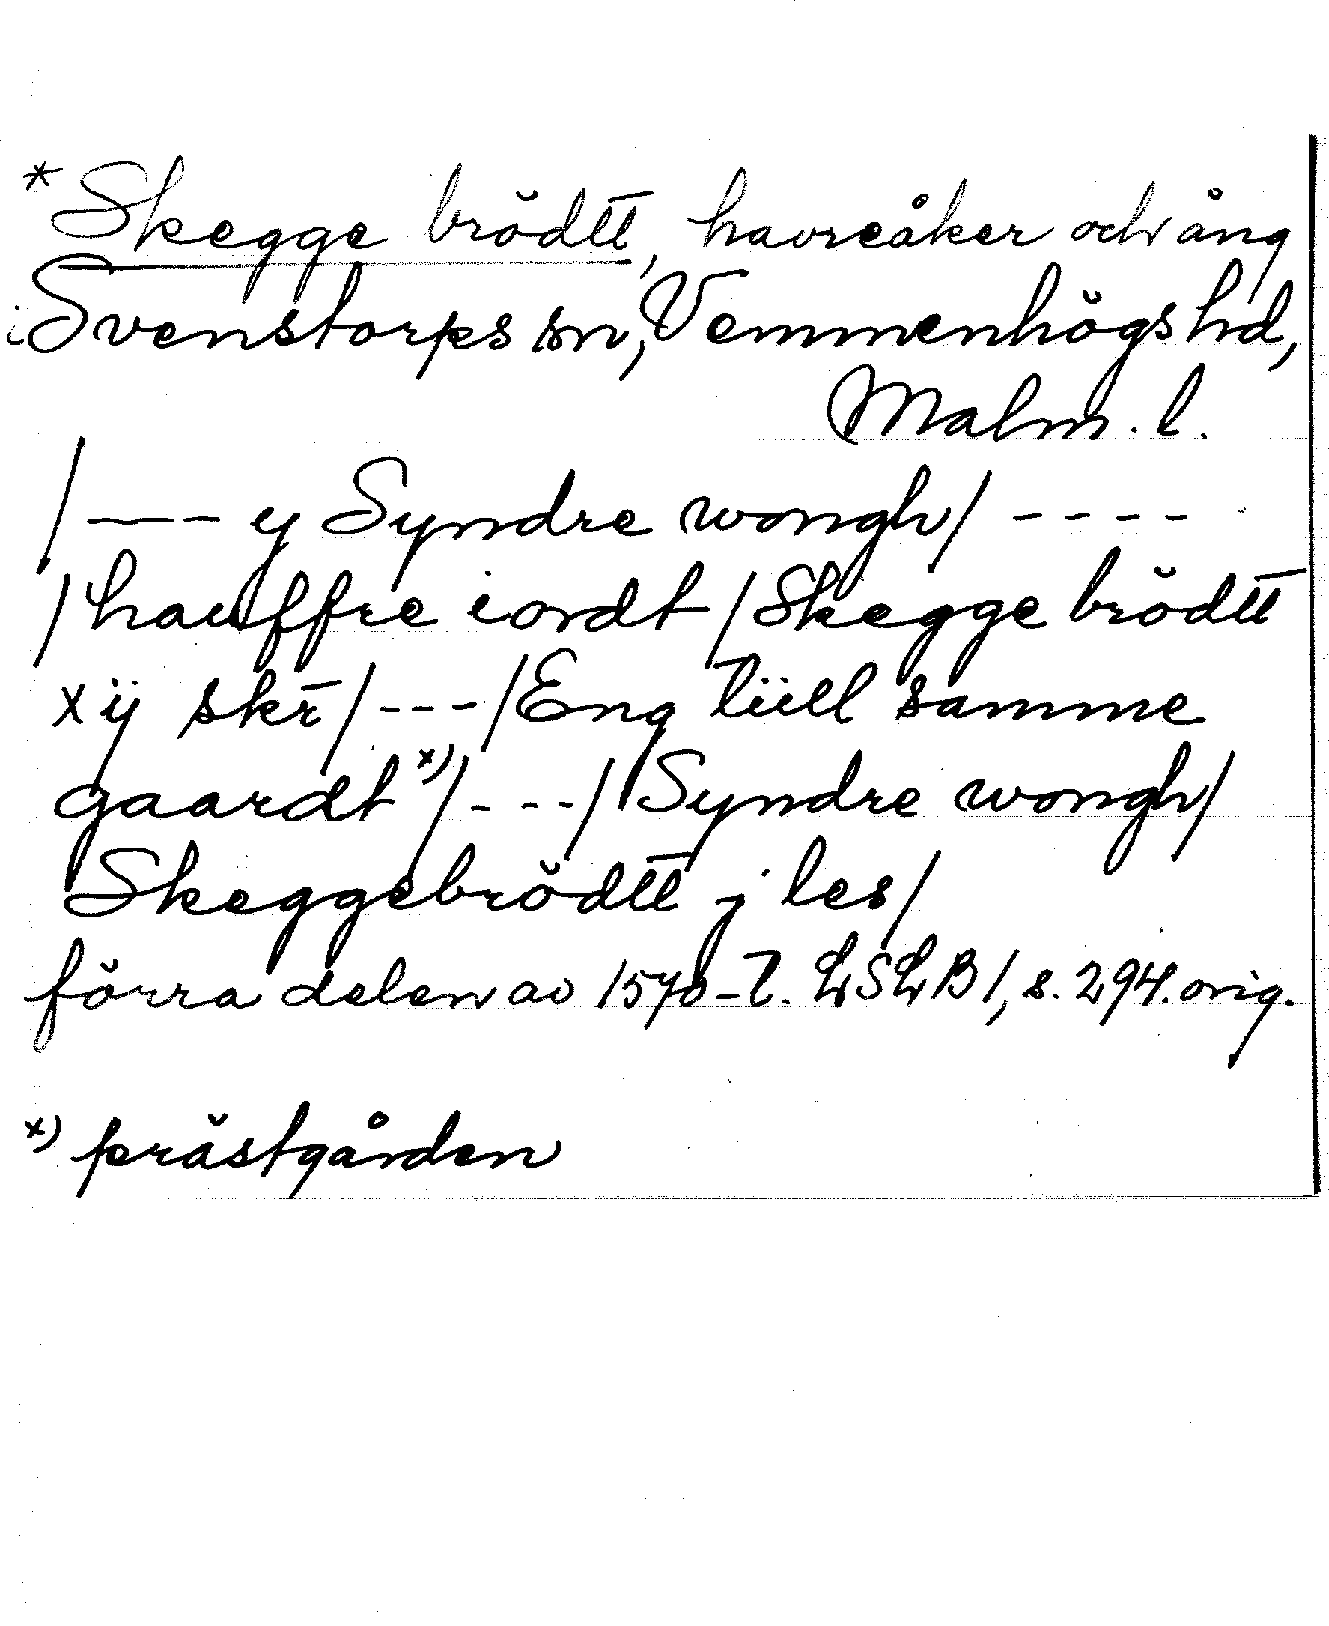 * Skegge brödtt, havreåker och äng
i Svenstorps sn, Vemmenhögs hd,
Malm. l.
/ - - - y Syndre wongh / - - - -
/ hauffre iordt / Skegge brödtt
xij skr̄ / - - - / Eng tiill samme
gaardt x) / - - - / Syndre wongh /
Skeggebrödtt j les /
förra delen av 1570-t. LSLB 1, s. 294. orig.
x) prästgården